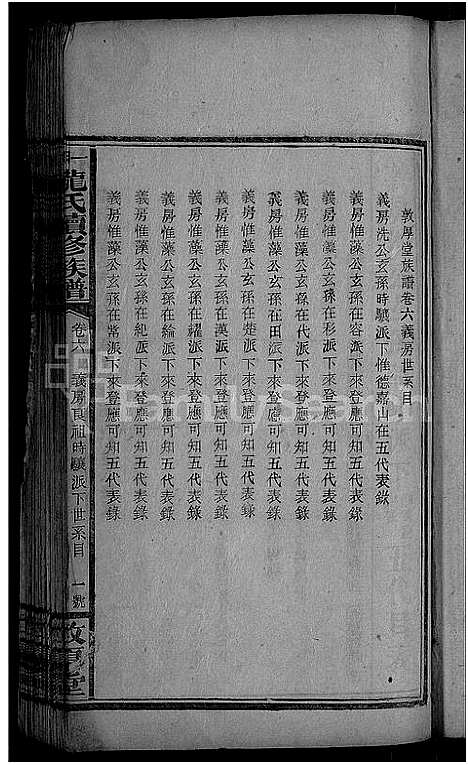 敦厚堂族譜卷六義房世系目
義房洗公玄孫時驤派下惟德嘉山在五代表錄
義房惟藻公玄孫在容派下來登應可知五代表錄
義房惟藻公玄孫在形派下來登應可知五代表錄
義房惟藻公玄孫在代派下來登應可知五代表錄
義房惟藻公玄孫在田派下來登應可知五代表錄
義房惟藻公玄孫在楚派下來登應可知五代表錄
義房惟藻公玄孫在漢派下來登應可知五代表錄
義房惟藻公玄孫在耀派下來登應可知五代表錄
義房惟藻公玄孫在綸派下來登應可知五代表錄
義房惟藻公玄孫在紀派下來登應可知五代表錄
義房惟藻公玄孫在常派下來登應可知五代表錄
龍氏續修族譜
卷六 義房良祖時驤派下世系目 一號
堂
FamilySearch